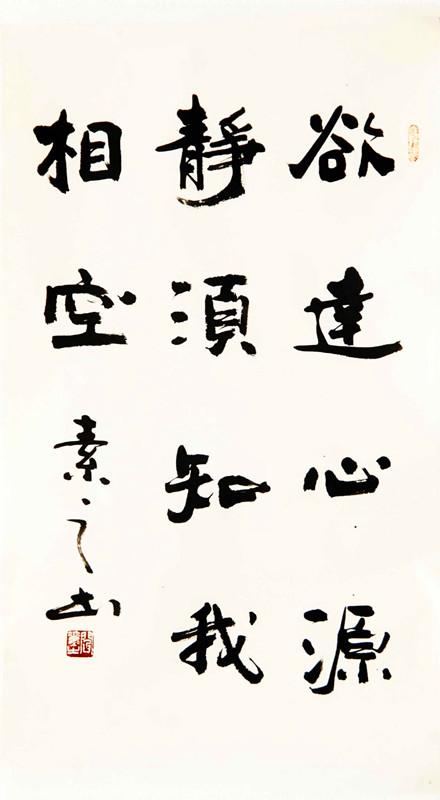 欲達心源
靜須知我
相空
素之书